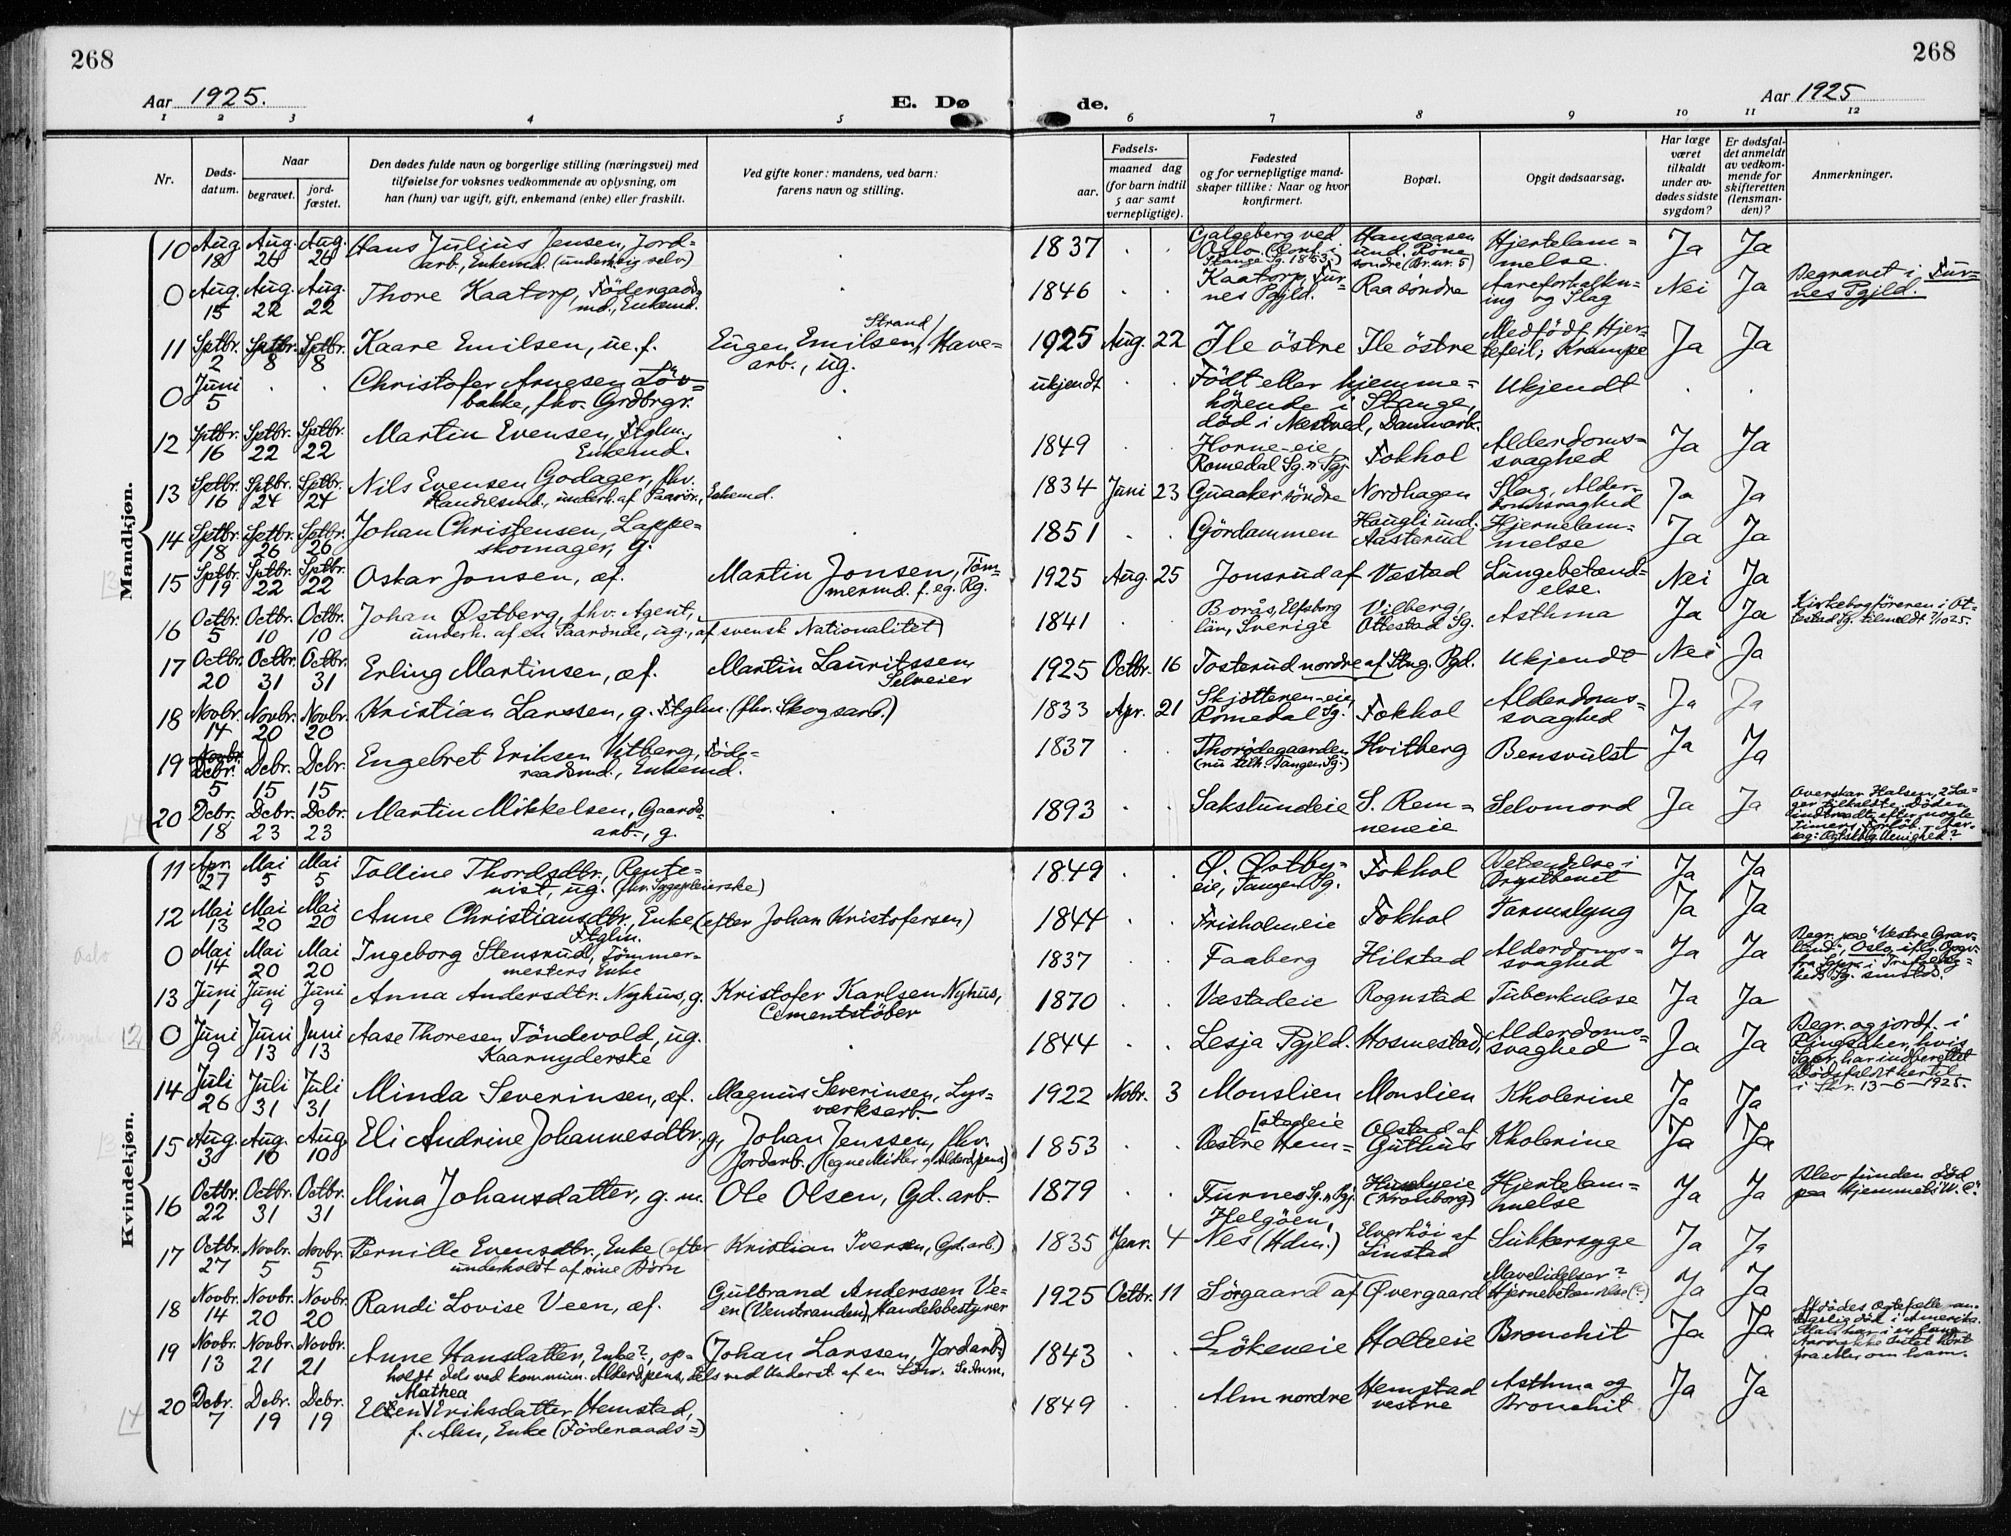 268
268
Aar 1925.
E. Dø
de.
Aar 1925
1 2 3 4 5 6 7 8 9 10 11 12
Nr.
Døds-
datum.
Naar
begravet.
jord-
fæstet.
Den dødes fulde navn og borgerlige stilling (næringsvei) med
tilføielse for voksnes vedkommende av oplysning, om
han (hun) var ugift, gift, enkemand (enke) eller fraskilt.
Ved gifte koner: mandens, ved barn:
farens navn og stilling.
Fødsels-
aar.
maaned dag
(for barn indtil
5 aar samt
vernepligtige).
Fødested
og for vernepligtige mand-
skaper tillike: Naar og hvor
konfirmert.
Bopæl.
Opgit dødsaarsag.
Har læge
været
tilkaldt
under av-
dødes sidste
sygdom?
Er dødsfal-
det anmeldt
av vedkom-
mende for
skifteretten
(lensman-
den)?
Anmerkninger.
Mandkjøn.
10 Aug. 18 Aug. 26 Aug. 26 Hans Julius Jensen, Jord=
arb., Enkemd. (underh. sig selv)
1837 Galgeberg ved
Oslo (Conf. i
Stange Sg. 1853.) Hansaasen
und. Røne
søndre (Br. nr. 5) Hjertelam=
melse. Ja Ja
0 Aug. 15 Aug. 22 Aug. 22 Thore Kaatorp, Föderaads
md., Enkemd.
1846 Kaatorp, Fur=
nes Pgjld. Raa söndre Aareforkalkn-
ing og Slag Nei Ja Begravet i Fur=
nes Pgjld.
11 Sptbr. 2 Sptbr. 8 Sptbr. 8 Kaare Emilsen, ue. f. Eugen Emilsen Strand, Have=
arb., ug.
1925 Aug. 22 Ile östre Ile östre Medfödt Hjer-
tefeil; Krampe Ja Ja
0 Juni 5 Christofer Arnesen Löv=
bakke, fhv. Grdbrgr.
ukjendt Födt eller hjemme=
hörende i Stange,
död i Næstved, Danmark. Ukjendt
12 Sptbr. 16 Sptbr. 22 Sptbr. 22 Martin Evensen, Ftglm.,
Enkemd.
1849 Horne-eie,
Romedal Sg. & Pgj. Fokhol Alderdoms=
svaghed Ja Ja
13 Sptbr. 16 Sptbr. 24 Sptbr. 24 Nils Evensen Godager, fhv.
Handelsmd., underh. af Paarör., Enkemd.
1834 Juni 23 Guaaker söndre Nordhagen Slag, Alder-
domssvaghed Ja Ja
14 Sptbr. 18 Sptbr. 26 Sptbr. 26 Johan Christensen, Lappe=
skomager, g.
1851 Gördammen Haugli und.
Aasterud Hjernelam=
melse Ja Ja
15 Sptbr. 19 Sptbr. 22 Sptbr. 22 Oskar Jonsen, æf. Martin Jonsen, Töm=
mermd. f. eg. Rg.
1925 Aug. 25 Jonsrud af Væstad Lungebetænd-
else. Nei Ja
16 Octbr. 5 Octbr. 10 Octbr. 10 Johan Østberg, fhv. Agent,
underh. af en Paarönde, ug., af svensk Nationalitet)
1841 Borås, Elfsborg
län, Sverige Vilberg,
Ottestad Sg. Asthma Ja Ja Kirkebogföreren i Ot-
testad Sg. tilmeldt 7/10 25.
17 Octbr. 20 Octbr. 31 Octbr. 31 Erling Martinsen, æf. Martin Lauritssen,
Selveier
1925 Octbr. 16 Tosterud nordre af Stng. Pgd. Ukjendt Nei Ja
18 Novbr. 14 Novbr. 20 Novbr. 20 Kristian Larssen, g. Ftglm. (fhv. Skogsarb.)
1833 Apr. 21 Skjötteren-eie,
Romedal Sg. Fokhol Alderdoms=
svaghed Ja Ja
19 Debr. 5 Debr. 15 Debr. 15 Engebret Eriksen Vitberg, Föde-
raadsmd., Enkemd.
1837 Thorödegaarden
(nu tilh. Tangen Sg.) Hvitberg Bensvulst Ja Ja
20 Debr. 18 Debr. 23 Debr. 23 Martin Mikkelsen, Gaards-
arb., g.
1893 Sakslundeie S. Rem=
meneie Selvmord Ja Ja Overskar Halsen, 2 Læ-
ger tilkaldte, Döden
indtraadte efter nogle
Timers Forlöb. Aar-
sag: Ægtskblg. Uenighed?
Kvindekjøn.
11 Apr. 27 Mai 5 Mai 5 Talline Thordsdtr., Rente=
nist, ug. (fhv. Sygepleierske)
1849 Ø. Østby=
eie, Tangen Sg. Fokhol Betændelse i
Brystbenet Ja Ja
12 Mai 13 Mai 20 Mai 20 Anne Christiansdtr., Enke, (efter Johan Kristofersen)
Ftglm.
1844 Frisholmeie Fokhol Tarmslyng Ja Ja
Oslo
0 Mai 14 Mai 20 Mai 20 Ingeborg Stensrud, Tömmer=
mesters Enke
1837 Faaberg Hilstad Alderdoms=
svaghed Ja Ja Begr. paa "Vestre Grav-
lund", Oslo, iflg. Opgv.
13 Juni 1 Juni 9 Juni 9 Anna Andersdtr. Nyhus, g. Kristofer Karlsen Nyhus,
Cementstöber
1870 Væstadeie Rognstad Tuberkulose Ja Ja
0 Juni 9 Juni 13 Juni 13 Aase Thoresen Töndevold, ug.
Kaarnyderske
1844 Lesja Pgjld. Hosmestad, Alderdoms=
svaghed Ja Ja Begr. og jordf. i
Ringsaker, hvis
Sgpr. har indberettet
Dödsfaldt hertil
i Skr. 13-6-1925.
14 Juli 26 Juli 31 Juli 31 Minda Severinsen, æf. Magnus Severinsen, Lys=
værksarb.
1922 Nobr. 3 Monslien Monslien Kholerine Ja Ja
15 Aug. 3 Aug. 10 Aug. 10 Eli Andrine Johannesdtr., g, Johan Jenssen, fhv.
Jordarb. (egne Midler og Alderdpens.)
1853 Vestre Hem=
[stadeie Olstad af
Guthus Kholerine Ja Ja
16 Octbr. 22 Octbr. 31 Octbr. 31 Mina Johansdatter, g. m. Ole Olsen, Gd. arb.
1879 Furnes Sg. & Pgj. Husebyeie
(Kronborg) Hjertelam=
melse Ja Ja Blev funden död
paa Hjemmets "W.C."
17 Octbr. 27 Novbr. 5 Novbr. 5 Pernille Evensdtr., Enke (efter Kristian Iversen, Gd. arb.)
underholdt af sine Börn
1835 Janr. 4 Helgöen,
Nes (Hdm.) Elverhöi af
Linstad Sukkersyge Ja Ja
18 Novbr. 14 Novbr. 20 Novbr. 20 Randi Lovise Veen, æf. Gulbrand Anderssen Ve=
en (Venstranden), Handelsbestyrer
1925 Octbr. 11 Sörgaard af Øvergaard Mavelidelser?
Hjernebetændelse (?) Ja Ja
19 Novbr. 13 Novbr. 21 Novbr. 21 Anne Hansdatter, Enke?, op= (Johan Larssen, Jordarb.)
holdt dels ved kommun. Alderdpens., dels ved Underst. af en Sön. Se Anm.
1843 Lökeneie Holteie Bronchit Ja Ja Afdödes Ægtefælle an-
tagelig död i Amerika.
20 Debr. 7 Debr. 19 Debr. 19 Ellen Mathea Eriksdatter Hemstad,
f. Alm, Enke (Föderaads=)
1849 Alm nordre Hemstad
vestre Asthma og
Bronchit Ja Ja